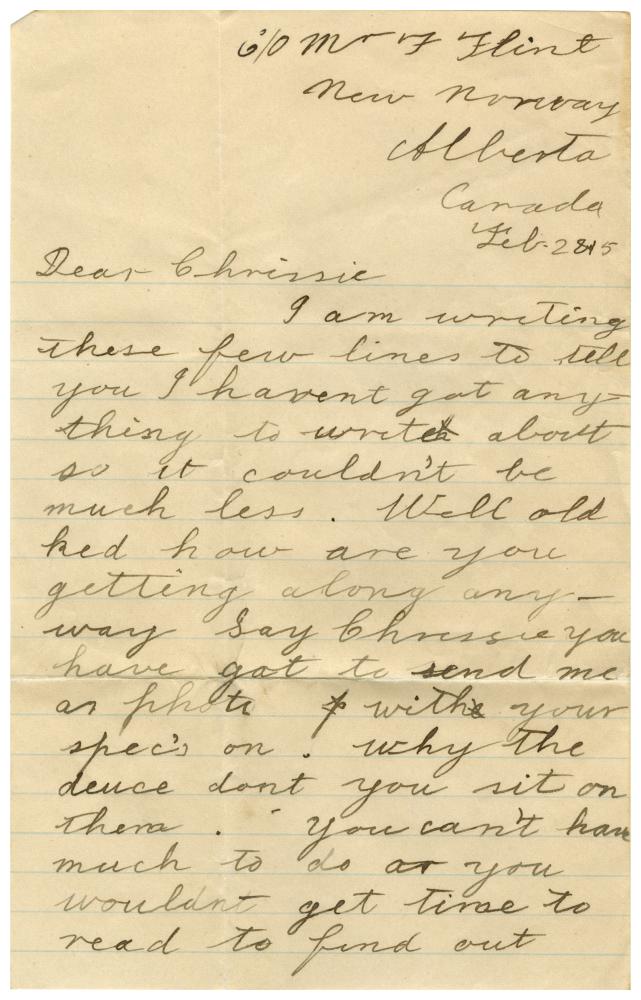 c/o Mr F Flint
New Norway
Alberta
Canada
Feb. 28 15
Dear Chrissie
I am writing
these few lines to tell
you I havent got any-
thing to write about
so it couldn't be
much less. Well old
ked how are you
getting along any-
way Say Chrissie you
have got to send me
a photo with your
spec's on. Why the
deuce dont you sit on
them. You can't have
much to do or you
wouldnt get time to
read to find out